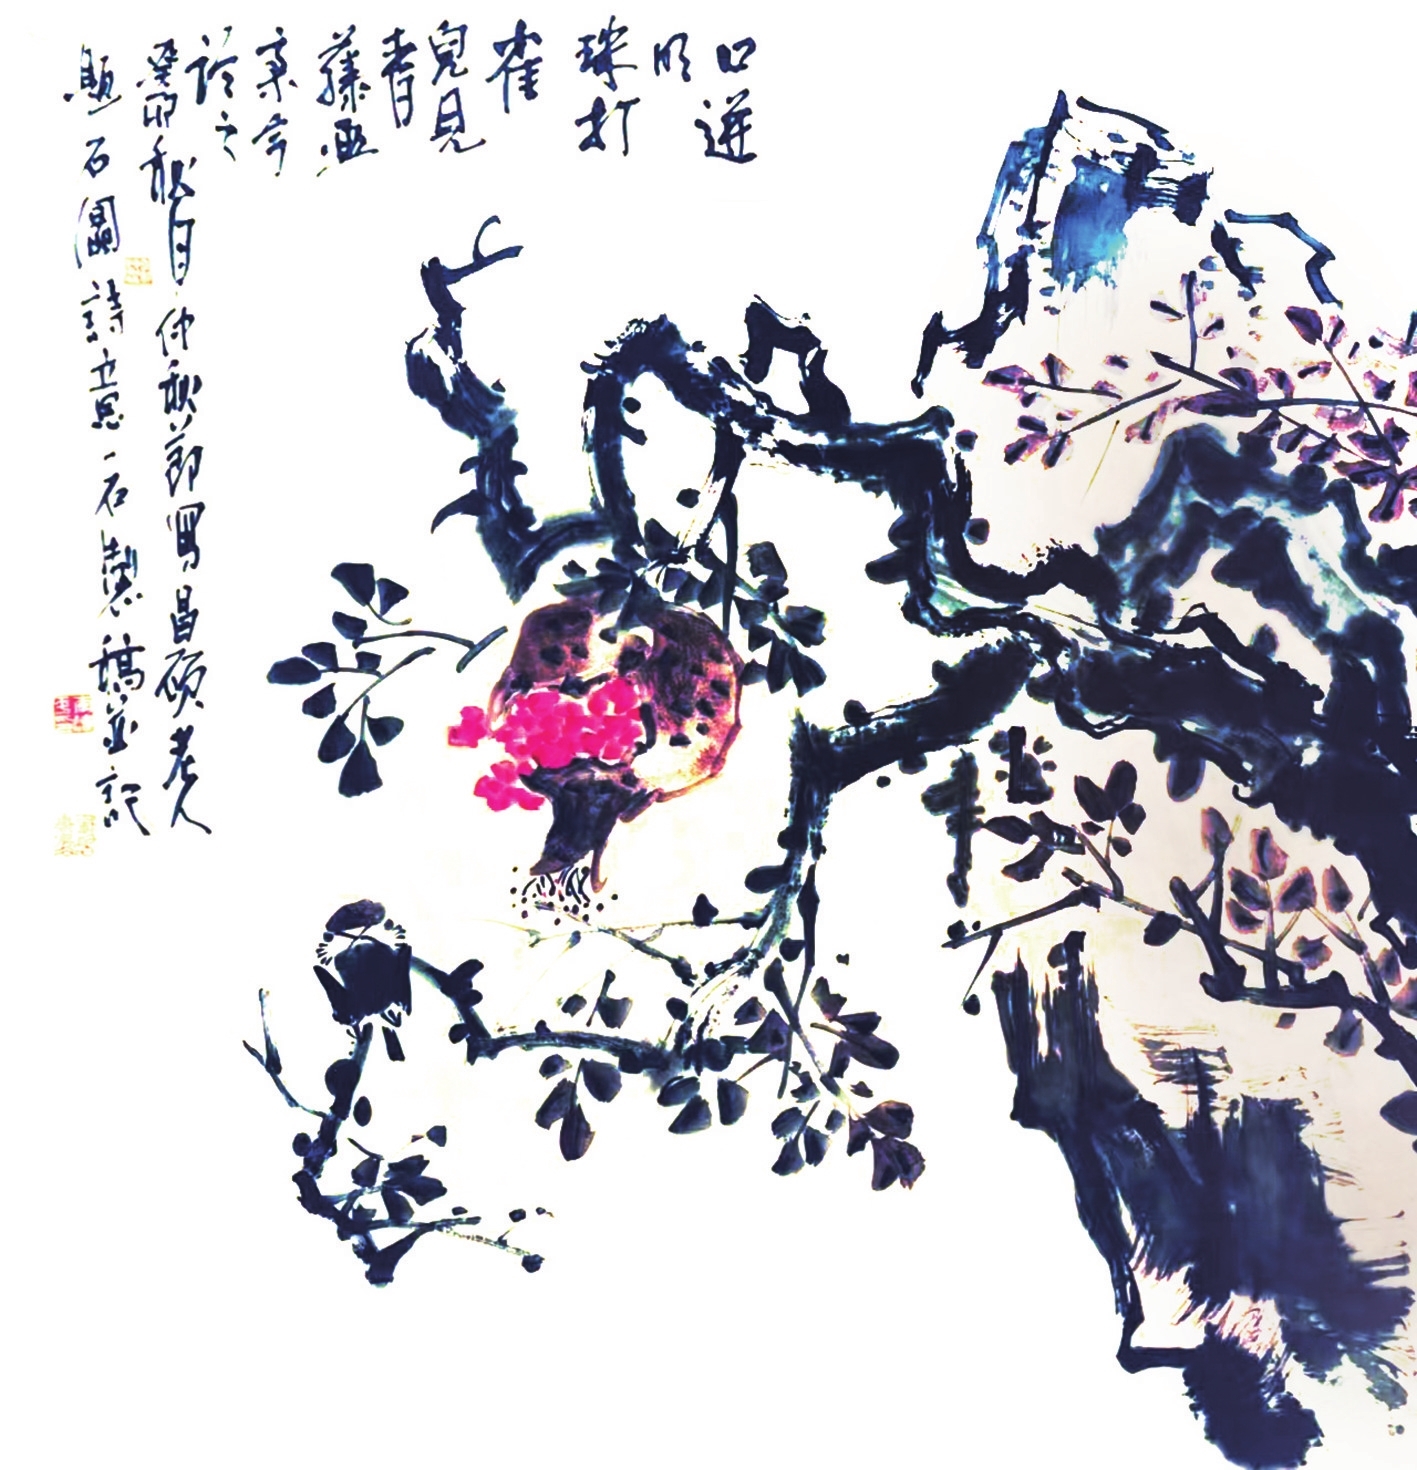 口迸
明
珠打
雀
兒見
青
藤画
京今
診之
癸卯秋月仲秋節寫昌碩老人
題石圖詩 一石製稿並記